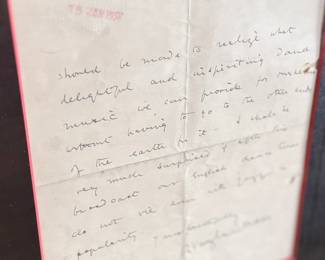 should be made to realize what
delightful and inspiriting dance
music we can provide for ourselves
without having to go to the other ends
of the earth for it. I shall be
very much surprised if after this
broadcast our English dance tunes
do not vie even with jazz in
popularity